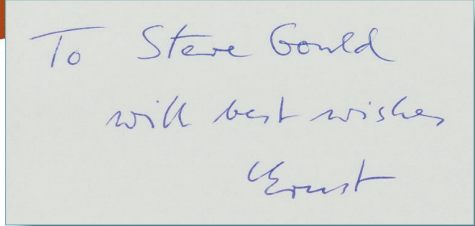 To Steve Gould
with best wishes
Ernst